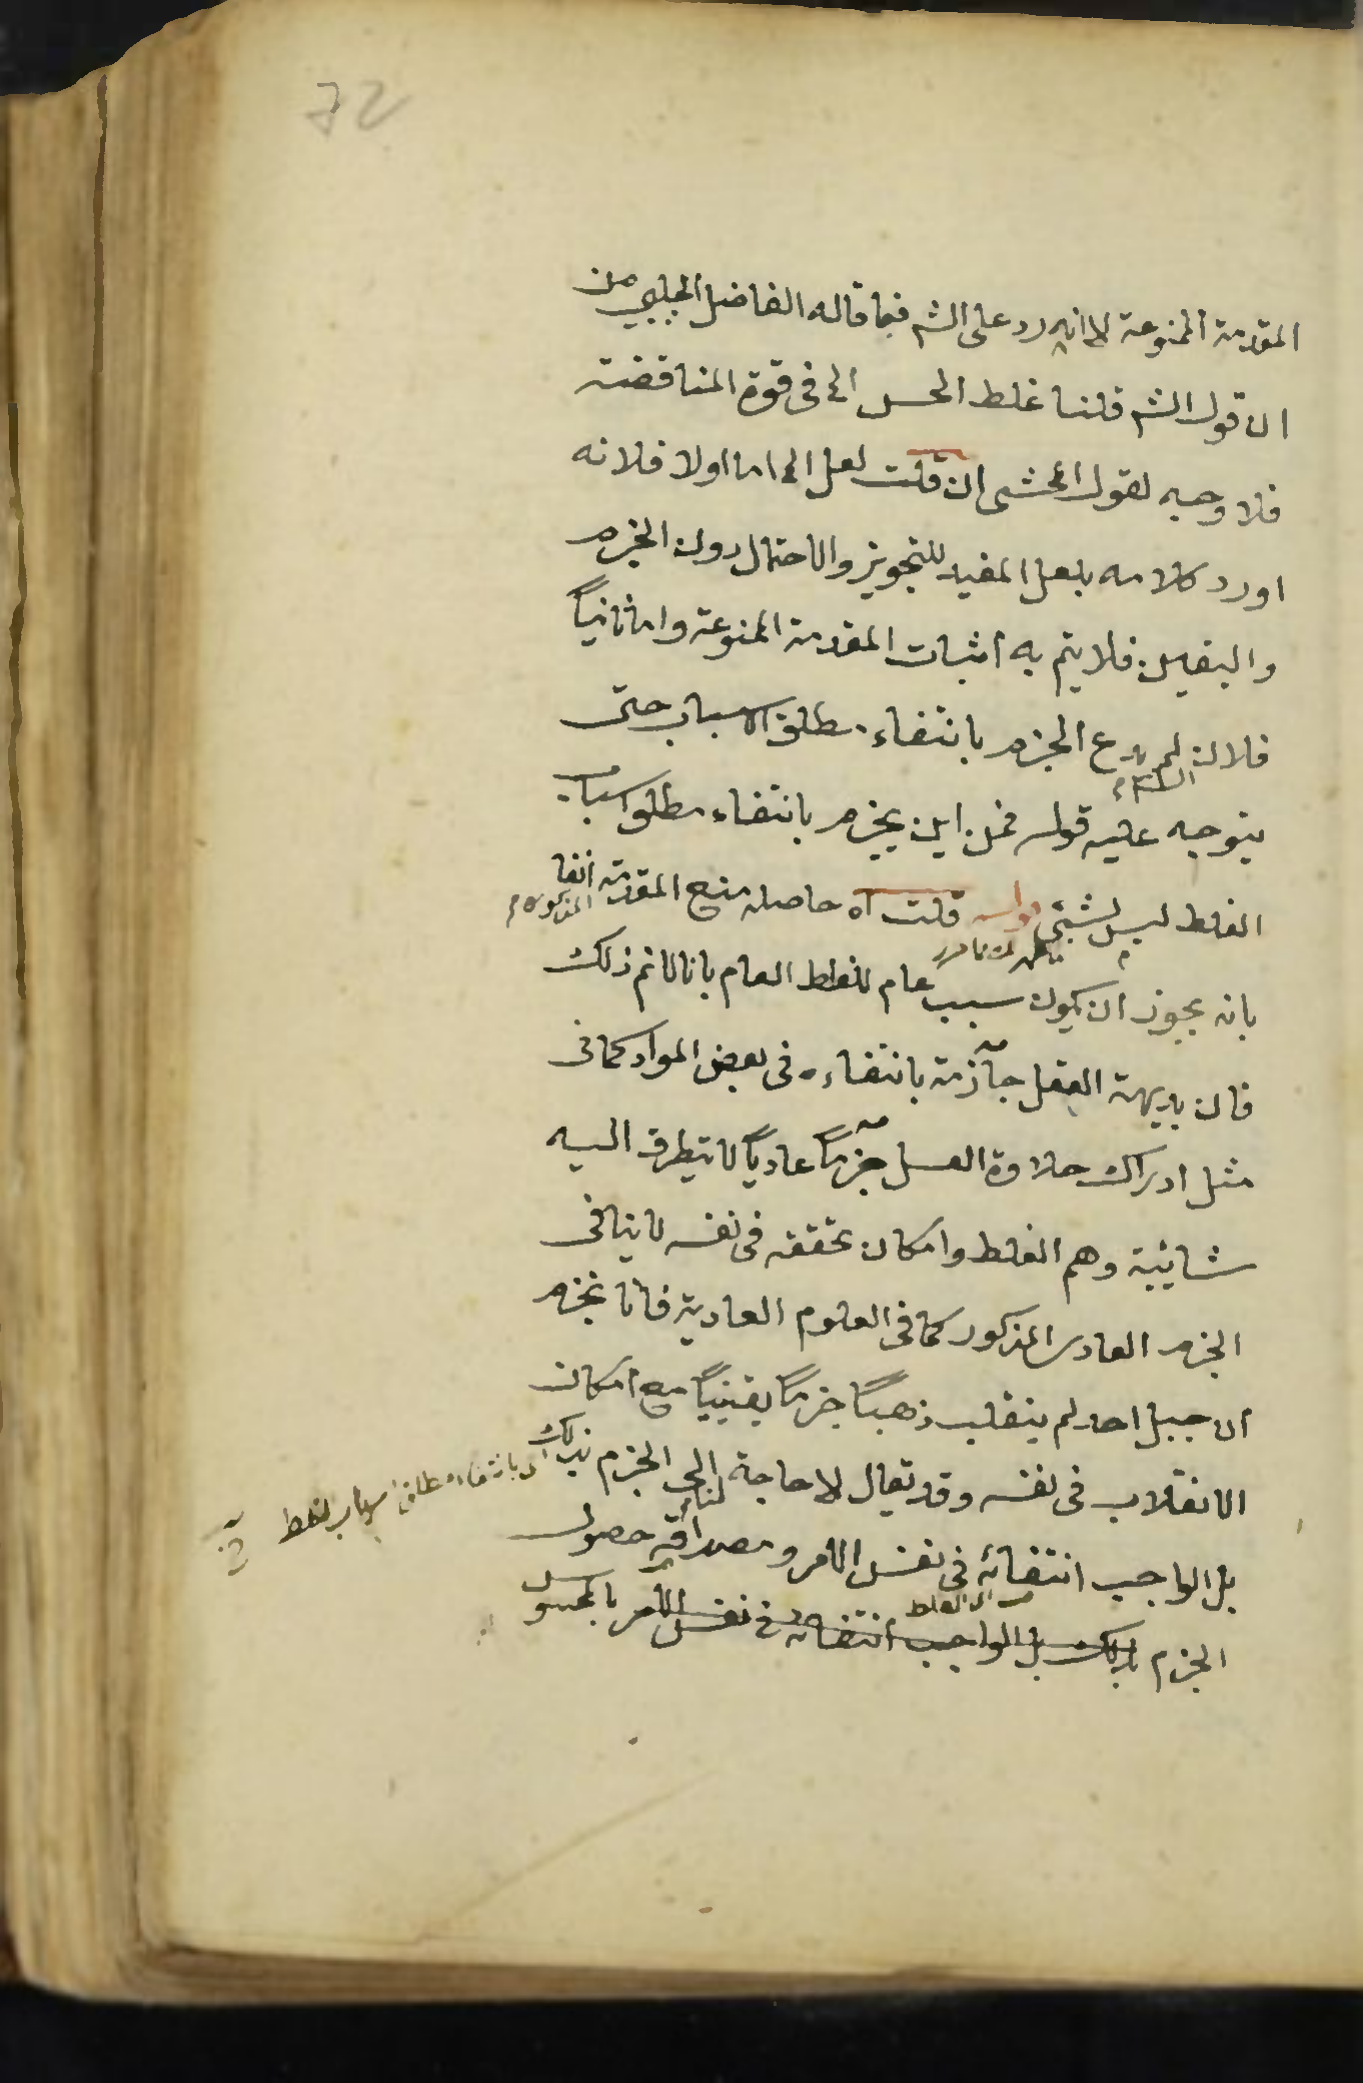 72
المقدمة الممنوعة لا انه رد على الشم فيما قاله الفاضل الچلبي من
ان قول الشم قلنا غلط الحس الخ فى قوة المناقضة
فلا وجه لقول المحشى ان قلت لعل الخ اما اولا فلانه
اورد كلامه بلعل المفيد للتجويز والاحتمال دون الجزم
واليقين فلا يتم به اثبات المقدمة الممنوعة واما ثانياً
فلان الشم لم يدع الجزم بانتفاء مطلق الاسباب حتى
يتوجه عليه قوله فمن اين يجزم بانتفاء مطلق اسباب
الغلط ليس بشئ قوله قلت اه حاصله منع المقدمة المذكورة آنفا
بانه يجوز ان يكون سبب عام للغلط العام بانا لانم ذلك
فان بديهة العقل جازمة بانتفاءه فى بعض المواد كما فى
مثل ادراك حلاوة العسل جزماً عادياً لا يتطرق اليه
شائبة وهم الغلط وامكان تحققه فى نفسه لا ينافى
الجزم العادى المذكور كما فى العلوم العادية فانا نجزم
ان جبل احد لم ينقلب ذهباً جزماً يقينياً مع امكان
الانقلاب فى نفسه وقد يقال لا حاجة لنا الى الجزم بذلك
اى بانتفاء مطلق اسباب الغلط
بل الواجب انتفائه فى نفس الامر ومصداقه حصول
اى الغلط
الجزم بذلك بل الواجب انتفائه فى نفس الامر بالمحسوس